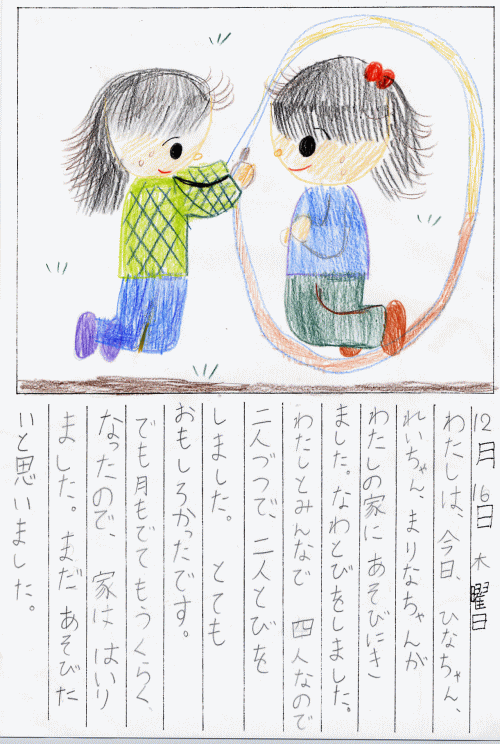 12月 16日 木曜日
わたしは、今日、ひなちゃん、
れいちゃん、まりなちゃんが
わたしの家に あそびにき
ました。なわとびをしました。
わたしとみんなで 四人なので
二人づつで、二人とびを
しました。 とても
おもしろかったです。
でも月もでて もうくらく
なったので、 家は はいり
ました。 まだ、あそびた
いと思いました。